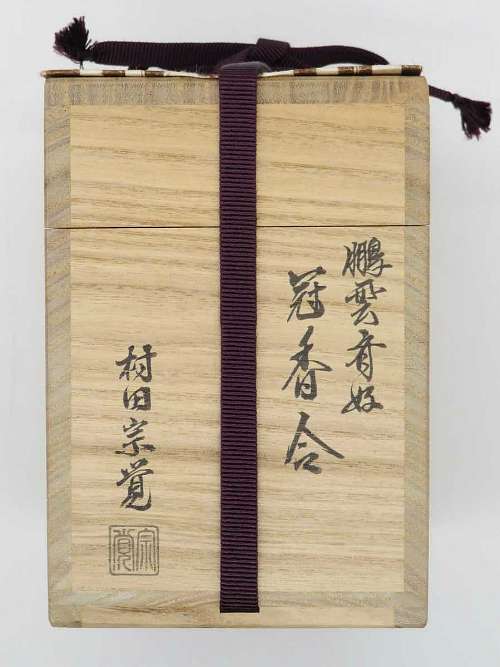 鵬雲斎好
冠香合
村田宗覚
宗覚